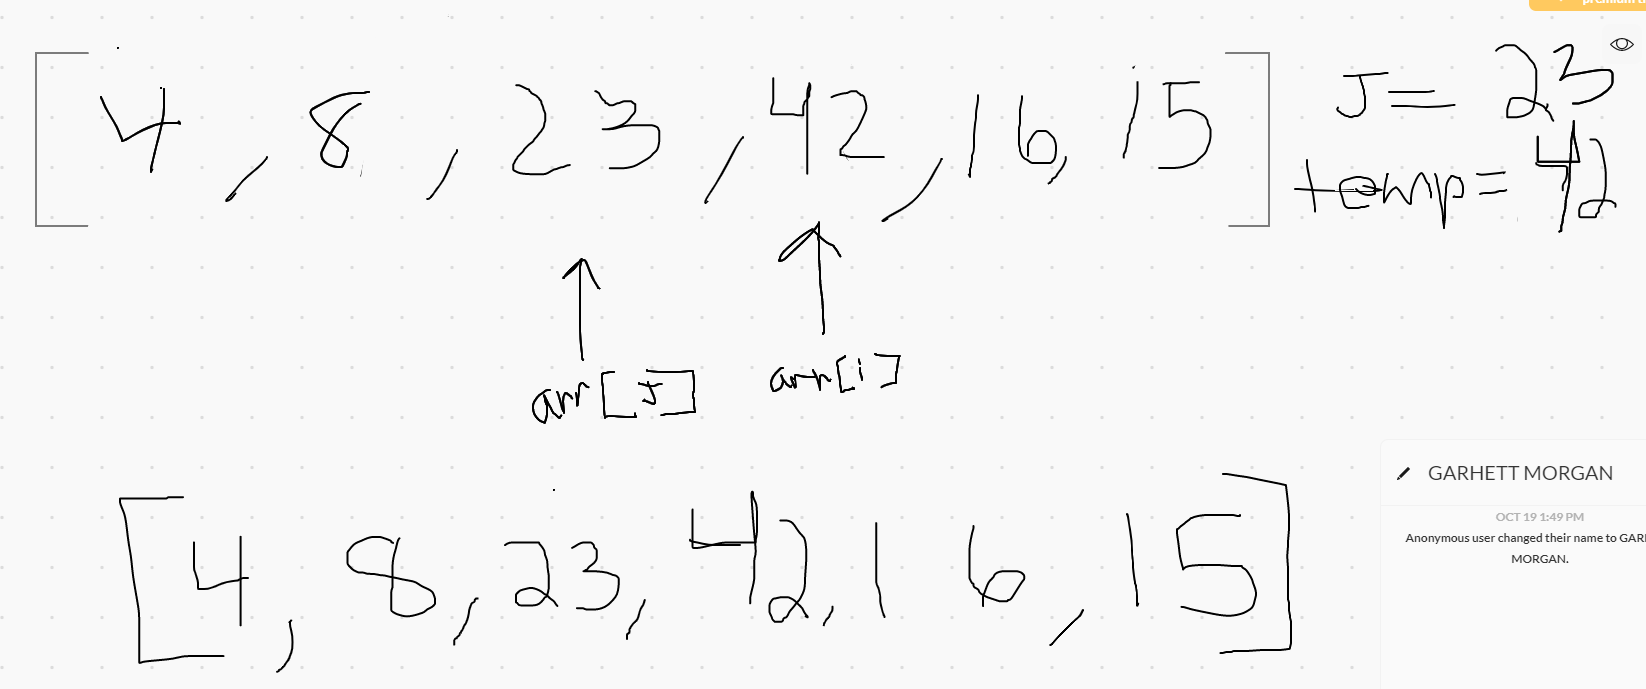 [4, 8, 23, 42, 16, 15] J = 23
temp = 42
arr[J] arr[i]
[4, 8, 23, 42, 16, 15]
GARHETT MORGAN
OCT 19 1:49 PM
Anonymous user changed their name to GAR
MORGAN.